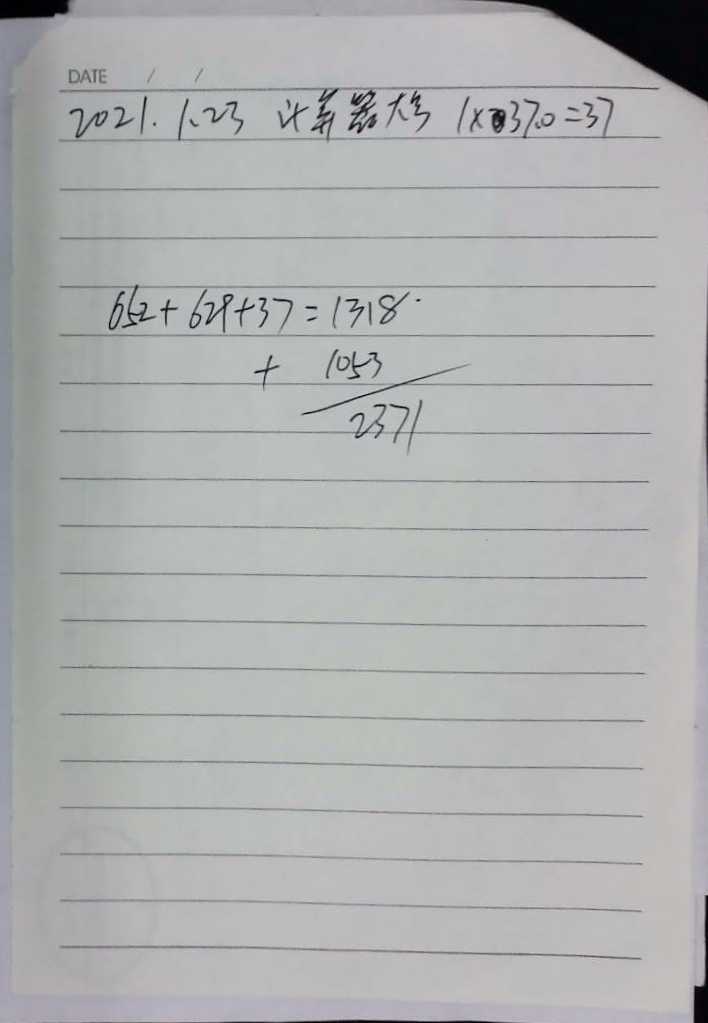 DATE / /
2021.1.23 计算器大号 1×37.0=37
652+629+37=1318
+ 1053
2371